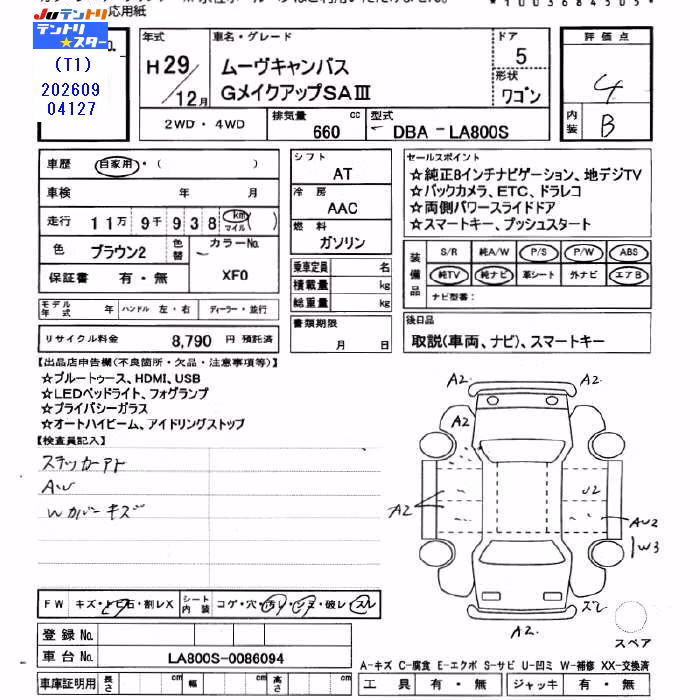 応用紙
*1003684505*
JUテントリ
テントリ★スター
(T1)
202609
04127
年式 車名・グレード ドア 評価点
H29/12月 ムーヴキャンバス 5 4
GメイクアップSAⅢ 形状 ワゴン
内装 B
2WD・4WD 排気量 660 cc 型式 DBA-LA800S
車歴 自家用・( )
車検 年 月
走行 11万9千938 km マイル ( )
色 ブラウン2 色替 カラーNo. XF0
保証書 有・無
モデル年式 年 ハンドル 左・右 ディーラー・並行
リサイクル料金 8,790 円 預託済
シフト AT
冷房 AAC
燃料 ガソリン
乗車定員 名
積載量 kg
総重量 kg
書類期限 月 日
セールスポイント
☆純正8インチナビゲーション、地デジTV
☆バックカメラ、ETC、ドラレコ
☆両側パワースライドドア
☆スマートキー、プッシュスタート
装備品 S/R 純A/W P/S P/W ABS
純TV 純ナビ 革シート 外ナビ エアB
ナビ型番:
後日品
取説(車両、ナビ)、スマートキー
【出品店申告欄(不良箇所・欠品・注意事項等)】
☆ブルートゥース、HDMI、USB
☆LEDヘッドライト、フォグランプ
☆プライバシーガラス
☆オートハイビーム、アイドリングストップ
【検査員記入】
ステッカーアト
AW
Wカバーキズ
A2 A2
A2
A2 U2
AU2
W3
ズレ
A2
スペア
FW キズ・トビ石・割レX シート内装 コゲ・穴・汚レ・シミ・破レ・スレ
登録No.
車台No. LA800S-0086094
車庫証明用 長さ cm 幅 cm 高さ cm
A-キズ C-腐食 E-エクボ S-サビ U-凹ミ W-補修 XX-交換済
工具 有・無 ジャッキ 有・無